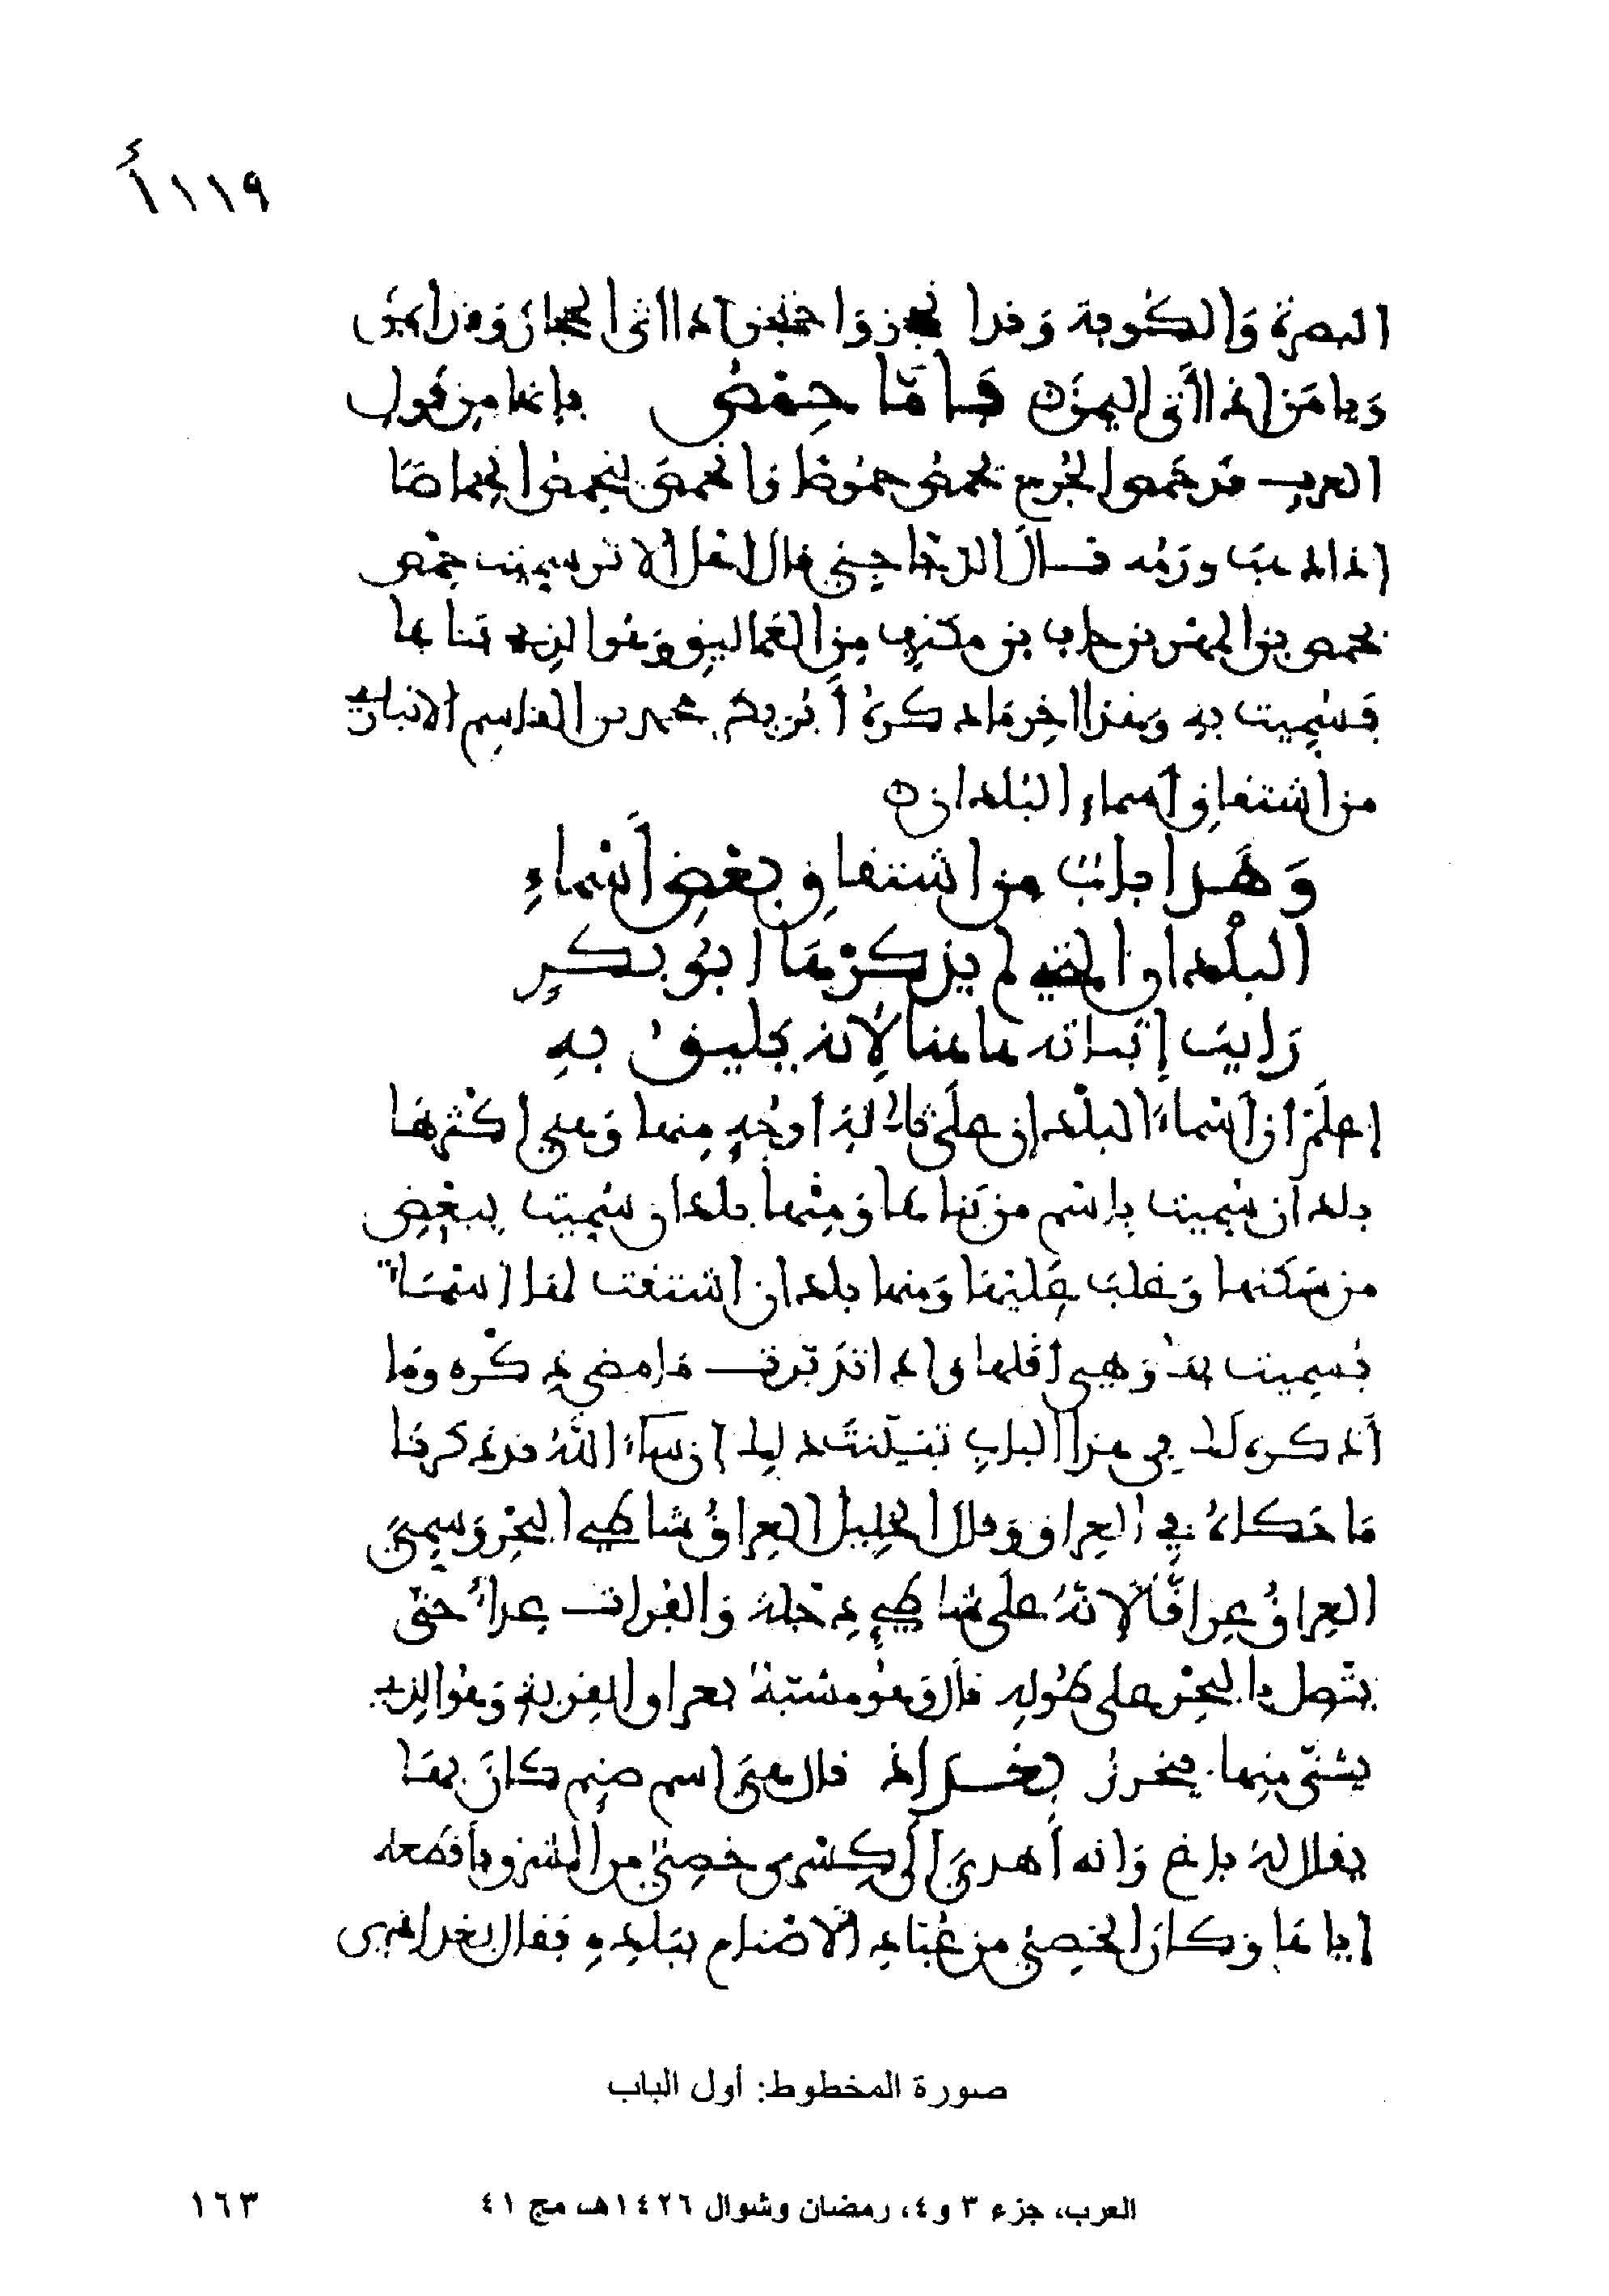 ١١٩أ
البصرة والكوفة وقد انحجزوا حتجز إذا اتى الحجاز وقد ايمن
ويامن إذا اتى اليمن فأمّا حِمْصُ فإنما من قول
العرب قد حمص الجرح يحمص حموصًا وانحمص ينحمص انحماصًا
إذا ذهب ورمه قال الزجاجي قال أهل الاثر سميت حمص
بحمص بن المهر بن حاب بن مكنف من العماليق وهو الذي بناها
فسُميت به وهذا اخر ما ذكره أبو بكر محمد بن القاسم الانباري
من اشتقاق أسماء البلدان
وَهَذا بابٌ من اشتقاق بعْضِ أسْماءِ
البلْدان التي لم يذكرْهَا ابو بكرٍ
رَايتُ إثباته هاهنا لأنه يليقُ بهِ
إعلَمْ ان أسْماءَ البلْدان على ثلاثة أوجُهٍ منها وهي اكثرها
بلدان سُمِيت بإسْم من بناها ومنْها بلدان سُمِيت ببعْضِ
من سَكنها وغلبَ عَليْهَا ومنها بلدان اشتقت لها اسْمَاءٌ
فسميت بها وهي أقلها واذا تدبرت ما مضى ذكره وما
أذكره لك في هذا الباب تبيّنتَ ذلك إن شاءَ اللهُ قد ذكرنا
مَا حَكاهُ في العراق وقال الخليل العراقُ شاطئ البحْر وسمي
العراقُ عِراقًا لأنّهُ على شاطئ دجلة والفرات عِداءً حتّى
يتّصل بالبحْر على طُوله قال وهُو مُشبّهٌ بعراق القربة وهُوَ الذي
يثنّى منها فيخرز بغداذ قال هي اسم صنم كانَ بها
يقال له باغ وانه أهدي إلى كِسْرى خصيٌّ من المشرق فأقطعه
اياها وكان الخصيُّ من عُبّاد الأصْنام ببلده فقال بغداذي
صورة المخطوط: أول الباب
العرب، جزء ٣ و٤، رمضان وشوال ١٤٢٦هـ، مج ٤١
١٦٣